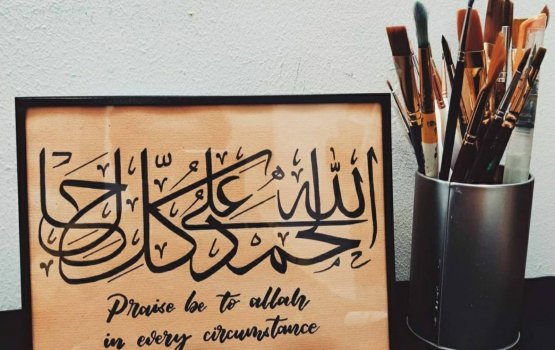 الحمد لله على كل حال
Praise be to allah
in every circumstance